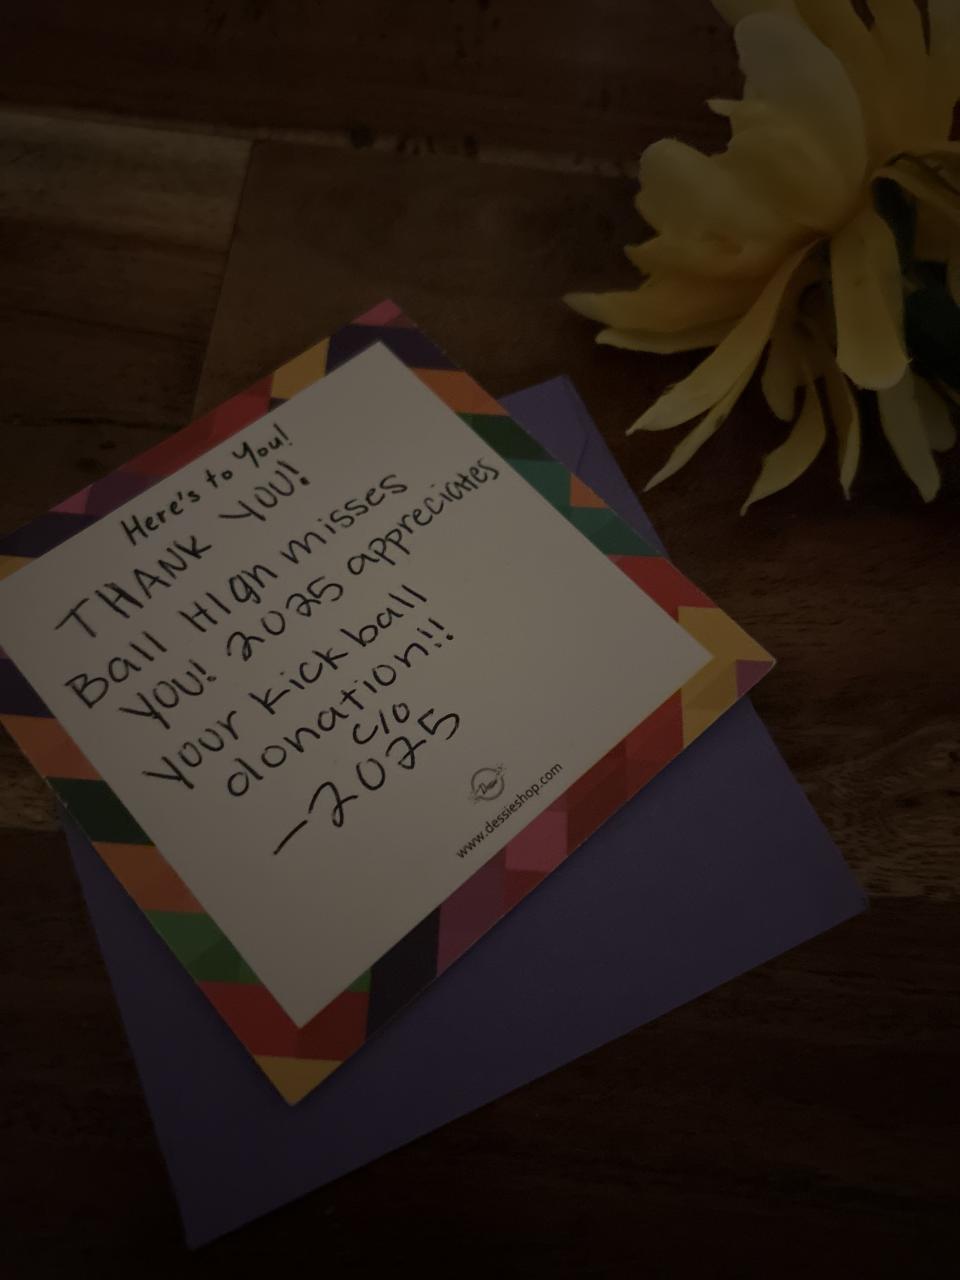 Here's to You!
THANK YOU!
Ball HIgh misses
YOU! 2025 appreciates
your kickball
donation!!
c/o
—2025
www.dessieshop.com